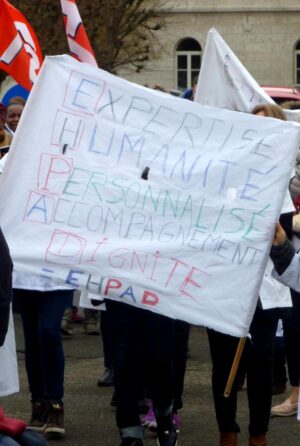 EXPERTISE
HUMANITÉ
PERSONNALISÉ
ACCOMPAGNEMENT
DIGNITÉ
= EHPAD